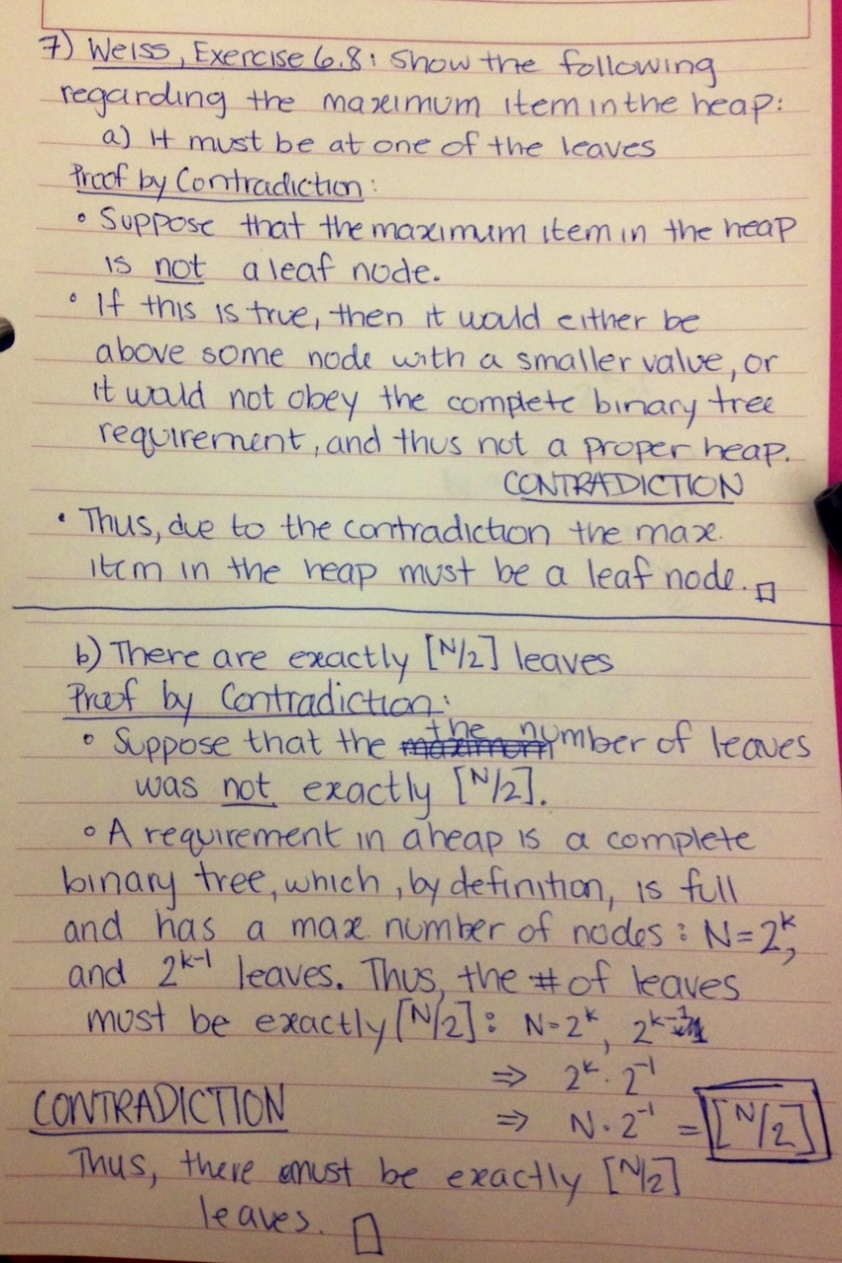 7) Weiss, Exercise 6.8: Show the following
regarding the maximum item in the heap:
a) It must be at one of the leaves
Proof by Contradiction:
• Suppose that the maximum item in the heap
is not a leaf node.
• If this is true, then it would either be
above some node with a smaller value, or
it would not obey the complete binary tree
requirement, and thus not a proper heap.
CONTRADICTION
• Thus, due to the contradiction the max.
item in the heap must be a leaf node. □
b) There are exactly [N/2] leaves
Proof by Contradiction:
• Suppose that the the number of leaves
was not exactly [N/2].
• A requirement in a heap is a complete
binary tree, which, by definition, is full
and has a max number of nodes: N=2^k,
and 2^{k-1} leaves. Thus, the # of leaves
must be exactly [N/2]: N=2^k, 2^{k-1}
⇒ 2^k · 2^{-1}
CONTRADICTION ⇒ N · 2^{-1} = [N/2]
Thus, there must be exactly [N/2]
leaves. □